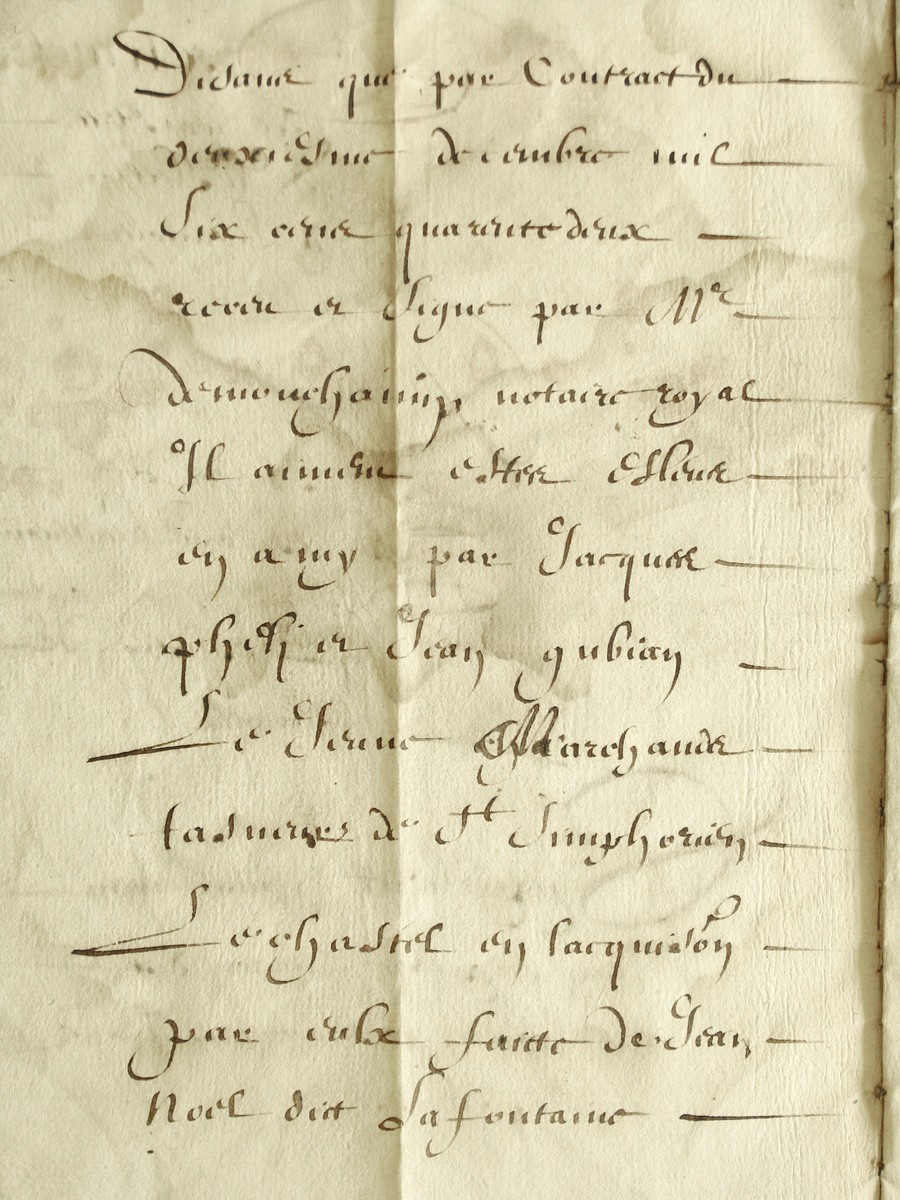 Disant que par Contract du
deuxiesme decembre mil
Six cens quarente deux
receu et signe par Mr
demonchamp, notaire royal
Il auroient estez Esleus
en amy par Jacques
et Jean gubian
Le Jeune Marchands
de St Simphorien
Le chastel en lacquison
par eulx faicte de Jean
Noel dict Lafontaine